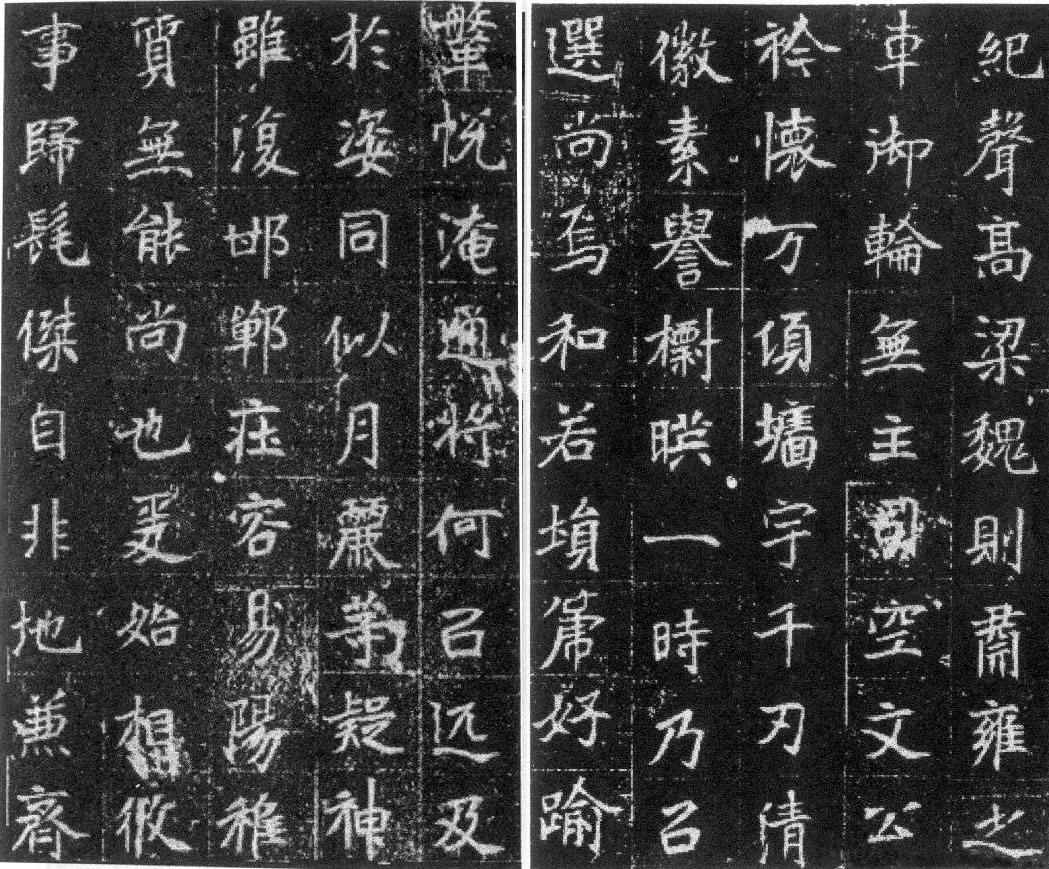 紀聲高梁魏則肅雍之
車御輪無主司空文公
衿懷万傾墻宇千刃清
徽素譽㯳映一時乃以
選尚焉和若塤箎好踰
鞶帨淹通將何以远及
於姿同似月麗茀疑神
雖復邯鄲莊容易陽稚
質無能尚也爰始相攸
事歸髦傑自非地兼齊